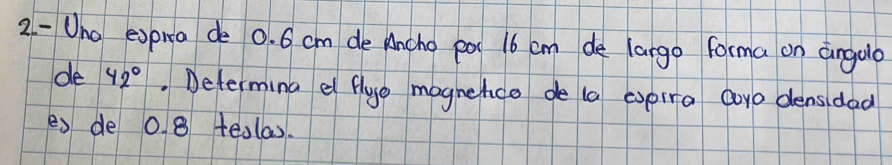 2.- Una espira de 0.6 cm de Ancho por 16 cm de largo forma un ángulo
de 42°. Determina el flujo magnetico de la espira cuya densidad
es de 0.8 teslas.